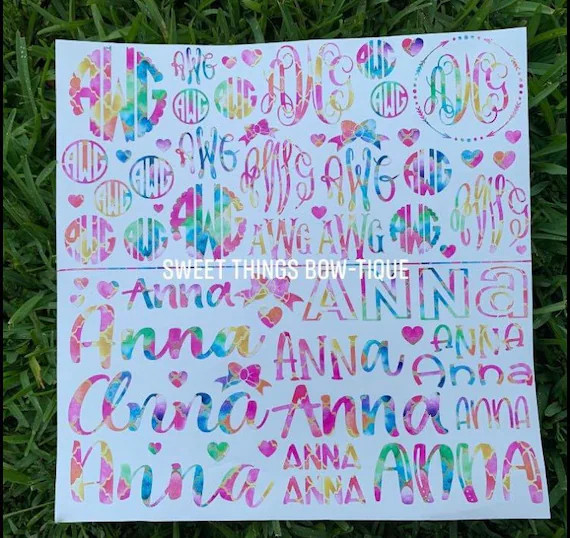 AWG AWG AWG AWG AWG
AWG AWG AWG
AWG AWG AWG AWG AWG AWG
AWG
AWG AWG AWG AWG AWG AWG AWG
SWEET THINGS BOW-TIQUE
Anna ANNa
Anna ANNA ANNA
Anna
Anna Anna ANNA
Anna ANNA ANNA
ANNA